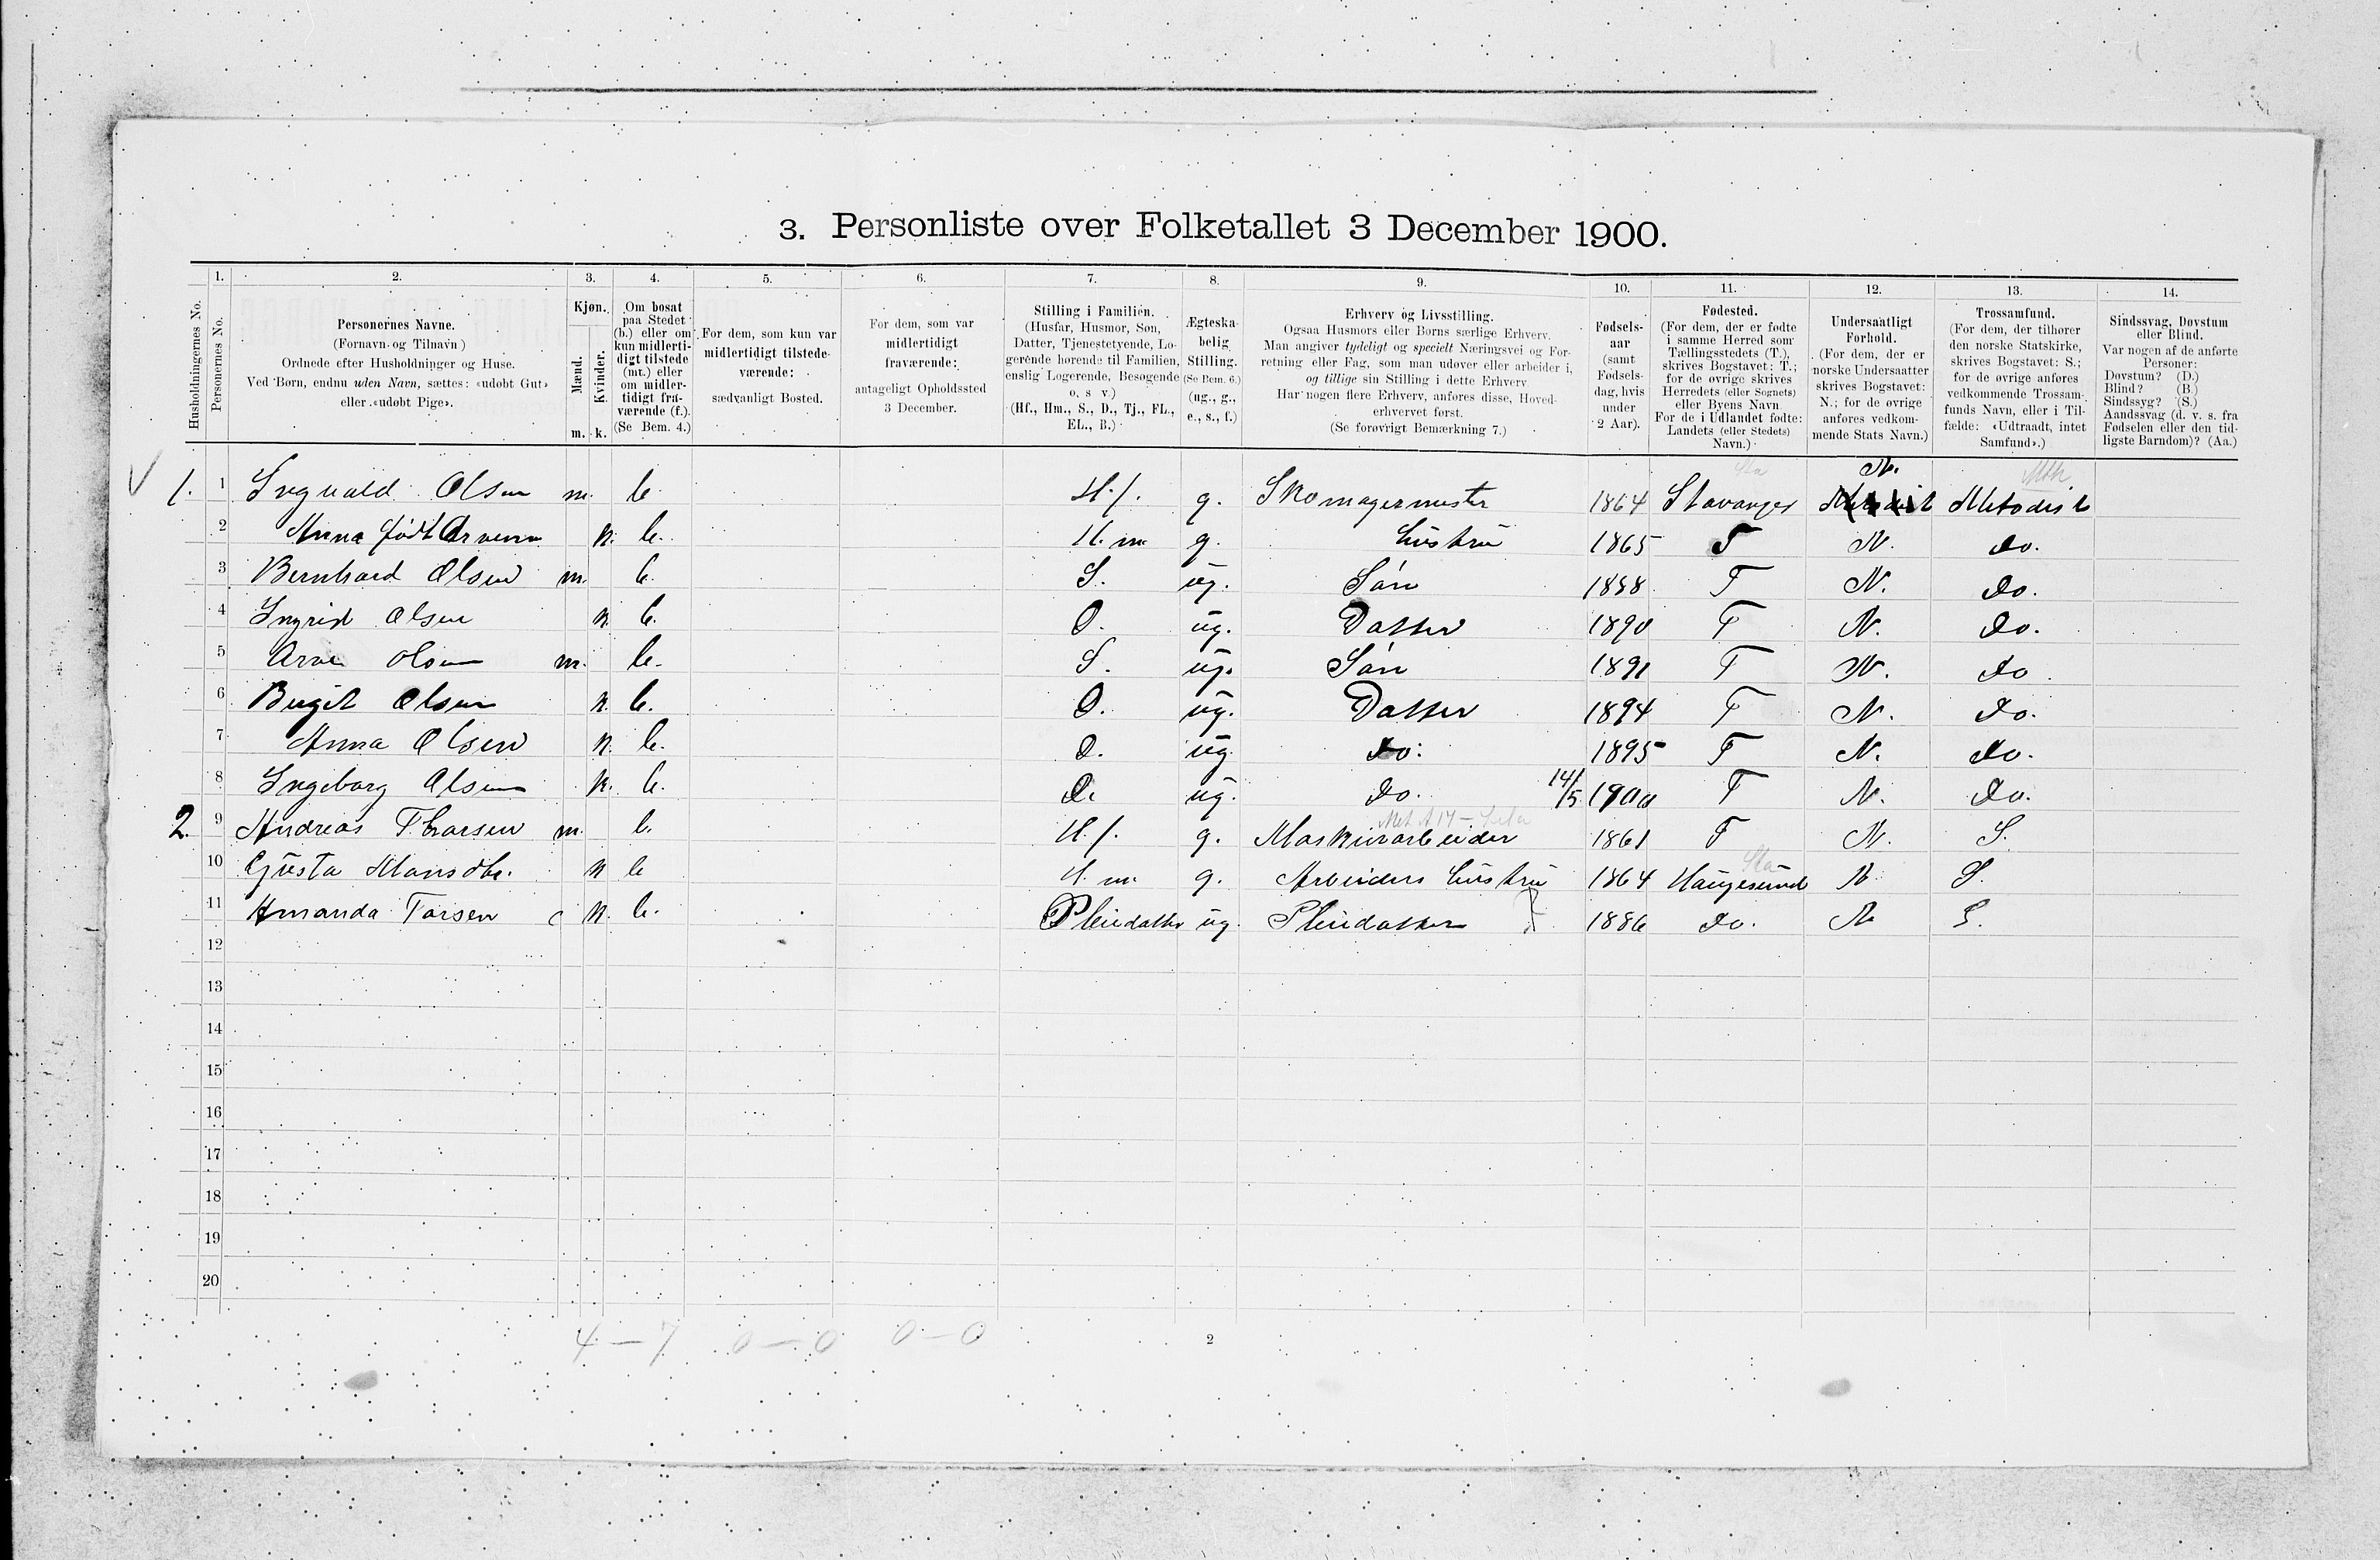 3. Personliste over Folketallet 3 December 1900.
1. 2. 3. 4. 5. 6. 7. 8. 9. 10. 11. 12. 13. 14.
Husholdningernes No.
Personernes No.
Personernes Navne.
(Fornavn og Tilnavn)
Ordnede efter Husholdninger og Huse.
Ved Børn, endnu uden Navn, sættes: «udøbt Gut»
eller «udøbt Pige».
Kjøn.
Mænd.
Kvinder.
m. k.
Om bosat
paa Stedet
(b.) eller om
kun midlerti-
digt tilstede
(mt.) eller
om midler-
tidigt fra-
værende (f.).
(Se Bem. 4.)
For dem, som kun var
midlertidigt tilstede-
værende:
sædvanligt Bosted.
For dem, som var
midlertidigt
fraværende:
antageligt Opholdssted
3 December.
Stilling i Familien.
(Husfar, Husmor, Søn,
Datter, Tjenestetyende, Lo-
gerende hørende til Familien,
enslig Logerende, Besøgende
o. s v.)
(Hf., Hm., S., D., Tj., FL.,
EL., B.)
Ægteska-
belig
Stilling.
(Se Bem. 6.)
(ug., g.,
e., s., f.)
Erhverv og Livsstilling.
Ogsaa Husmors eller Børns særlige Erhverv.
Man angiver tydeligt og specielt Næringsvei og For-
retning eller Fag, som man udøver eller arbeider i,
og tillige sin Stilling i dette Erhverv
Har nogen flere Erhverv, anføres disse, Hoved-
erhvervet først.
(Se forøvrigt Bemærkning 7.)
Fødsels-
aar
(samt
Fødsels-
dag, hvis
under
2 Aar).
Fødested.
(For dem, der er fødte
i samme Herred som
Tællingsstedets (T.),
skrives Bogstavet: T.;
for de øvrige skrives
Herredets (eller Sognets)
eller Byens Navn
For de i Udlandet fødte:
Landets (eller Stedets)
Navn.)
Undersaatligt
Forhold.
(For dem, der er
norske Undersaatter
skrives Bogstavet:
N.; for de øvrige
anføres vedkom-
mende Stats Navn.)
Trossamfund.
(For dem, der tilhører
den norske Statskirke,
skrives Bogstavet: S.;
for de øvrige anføres
vedkommende Trossam-
funds Navn, eller i Til-
fælde: «Udtraadt, intet
Samfund».)
Sindssvag, Døvstum
eller Blind.
Var nogen af de anførte
Personer:
Døvstum? (D.)
Blind? (B)
Sindssyg? (S.)
Aandssvag (d. v. s. fra
Fødselen eller den tid-
ligste Barndom)? (Aa.)
Sta N. Mth
1. 1 Ingvald Olsen m. b. H.f. g. Skomagermester 1864 Stavanger Metodist
2 Anna født k. b. H.m. g. Hustru 1865 T N. do.
3 Bernhard Olsen m. b. S. ug. Søn 1888 T N. do.
4 Ingrid Olsen k. b. D. ug. Datter 1890 T N. do.
5 Arne Olsen m. b. S. ug. Søn 1891 T N. do
6 Birgit Olsen k. b. D. ug. Datter 1894 T N. do.
7 Anna Olsen k. b. D. ug. do. 1895 T N. do.
8 Ingeborg Olsen k. b. D. ug. do. 14/5 1900 T N. do.
2. 9 Andreas Tharsen m. b. H.f. g. Maskinarbeider 1861 T N. S.
Sta
10 Gusta k b H m g. Arbeiders Hustru 1864 Haugesund N S.
11 Amanda Tarsen k. b. Pleiedatter ug. Pleiedatter 1886 do. N S.
12
13
14
15
16
17
18
19
20
4 - 7 0 - 0 0 - 0
2